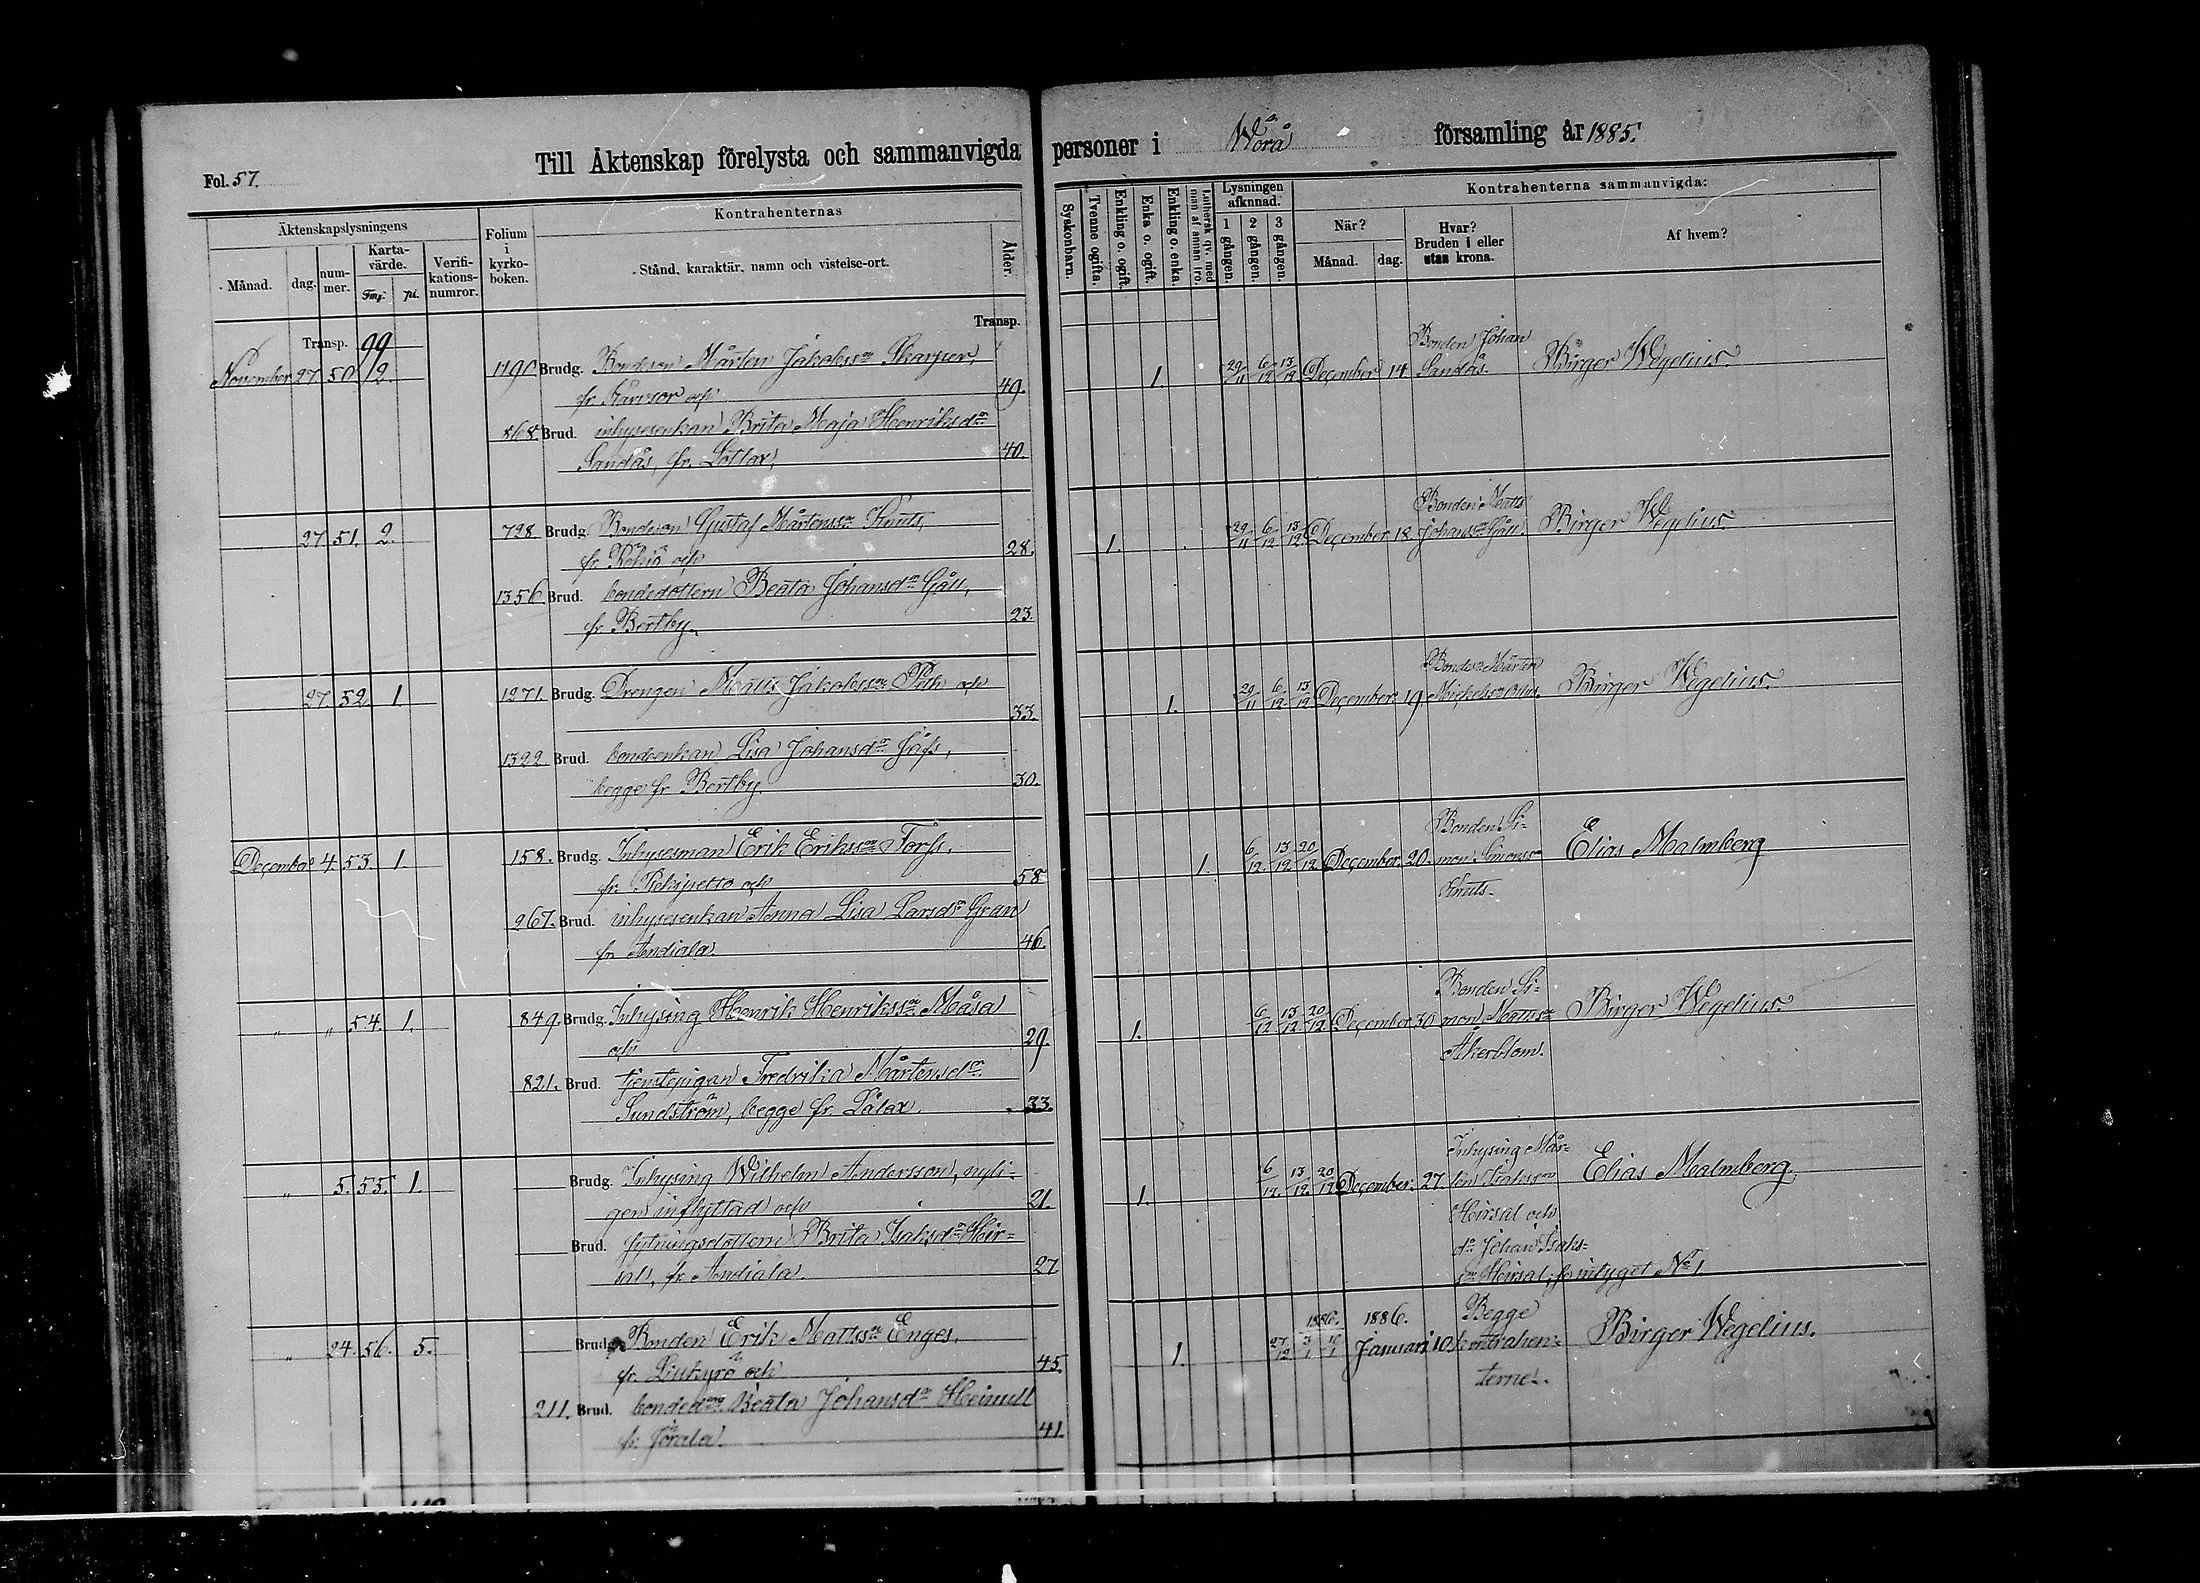 Fol. 57.
Till Äktenskap förelysta och sammanvigda personer i Wörå församling år 1885.
Äktenskapslysningens
Månad.
dag.
num-
mer.
Karta-
värde.
Fmg.
pi.
Verifi-
kations-
numror.
Folium
i
kyrko-
boken.
Kontrahenternas
Stånd, karaktär, namn och vistelse-ort.
Ålder.
Syskonbarn.
Tvenne ogifta.
Enkling o. ogift.
Enka o. ogift.
Enkling o. enka.
Luthersk qv. med
man af annan tro.
Lysningen
afkunnad.
1 gången.
2 gången.
3 gången.
Kontrahenterna sammanvigda:
När?
Månad.
dag.
Hvar?
Bruden i eller
utan krona.
Af hvem?
Transp. 99 Transp.
November 27. 50. 2. 1190 Brudg. Bondeson Mårten Jakobsson Skarper,
fr. Kärcsor och 49.
868 Brud. inhysesenkan Brita Maja Henriksdr
Sandås, fr. Lotlax, 40.
1. 29/11 6/12 13/12 December 14. Bonden Johan
Sandås. Birger Wegelius.
27. 51. 2. 728 Brudg. Bondeson Gustaf Mårtensson Knuts,
fr. Rökiö och 28.
1356 Brud. bondedottern Beata Johansdr Gåll,
fr. Bertby. 23.
1. 29/11 6/12 13/12 December 18. Bonden Matts
Johansson Gåll. Birger Wegelius
27. 52. 1. 1271. Brudg. Drengen Matts Jakobsson Pilk och
33.
1322 Brud. bondeenkan Lisa Johansdr Jåfs,
begge fr. Bertby. 30.
1. 29/11 6/12 13/12 December 19. Bonden Mårten
Mickelsson Birger Wegelius.
December 4. 53. 1. 158. Brudg. Inhysesman Erik Eriksson Torfs,
fr. Rekipetto och 58
267. Brud. inhysesenkan Anna Lisa Larsdr Gran
fr. Andiala. 46.
1. 6/12 13/12 20/12 December 20. Bonden Si-
mon Simonsson
Knuts. Elias Malmberg
" " 54. 1. 849. Brudg. Inhysing Henrik Henriksson Måsa
och 29.
821. Brud. tjenstepigan Fredrika Mårtensdr
Sundström, begge fr. Pålax. 33.
1. 6/12 13/12 20/12 December 30 Bonden Si-
mon Mattsson
Åkerblom. Birger Wegelius.
" 5. 55. 1. Brudg. Inhysing Wilhelm Andersson, nyli-
gen inflyttad och 21.
Brud. sytningsdottern Brita Isaksdr Heir=
sal, fr. Andiala. 27.
1. 6/12 13/12 20/12 December 27. Inhysing Mår-
ten Isaksson
Heirsal och
do Johan Isaks-
son Heirsal, se intyget No 1. Elias Malmberg
" 24. 56. 5. Brudg. Bonden Erik Mattsson Enges,
fr. Lillkyrö och 45.
211. Brud. bondedrn Beata Johansdr Heimull
fr. Jörala. 41.
1. 27/12 1886. 3/1 10/1 1886. Januari 10. Begge
kontrahen=
terne. Birger Wegelius.